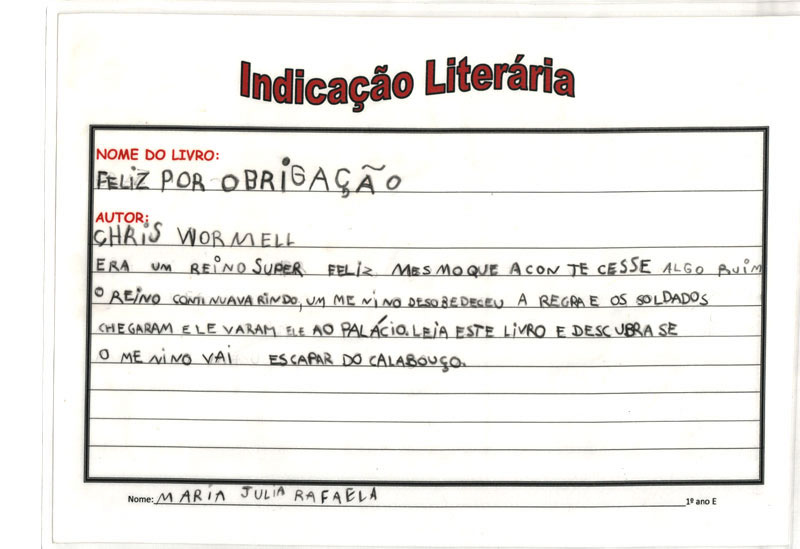 Indicação Literária
NOME DO LIVRO:
FELIZ POR OBRIGAÇÃO
AUTOR:
CHRIS WORMELL
ERA UM REINO SUPER FELIZ. MESMO QUE ACONTECESSE ALGO RUIM
O REINO CONTINUAVA RINDO, UM MENINO DESOBEDECEU A REGRA E OS SOLDADOS
CHEGARAM E LEVARAM ELE AO PALÁCIO. LEIA ESTE LIVRO E DESCUBRA SE
O MENINO VAI ESCAPAR DO CALABOUÇO.
Nome: MARIA JULIA RAFAELA 1º ano E